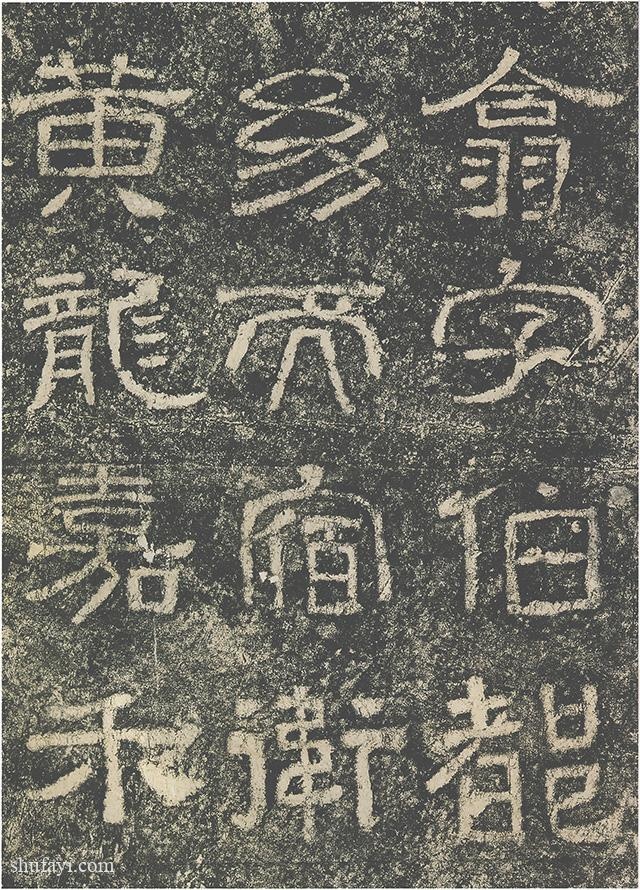 翕字伯都
幼而宿衛
黃龍嘉禾
shufayi.com